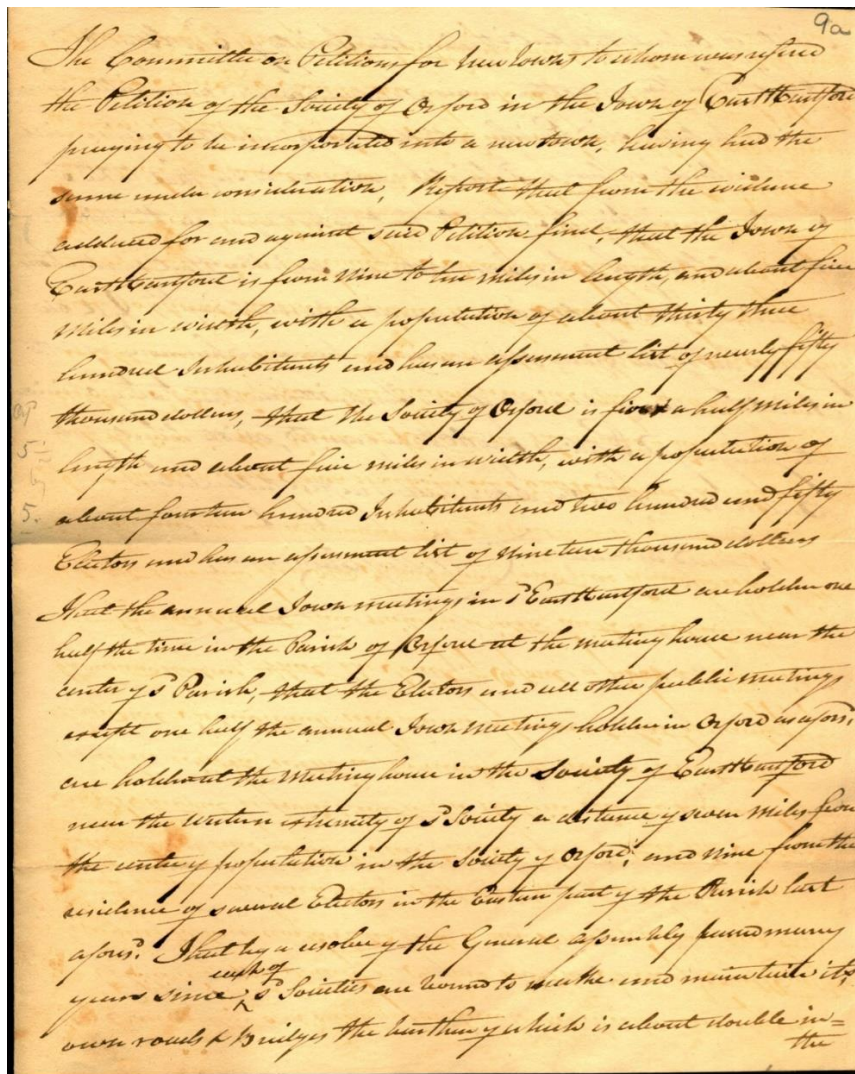 9a
The Committee on Petitions for New Towns to whom was refered
the Petition of the Society of Orford in the Town of East Hartford
praying to be incorporated into a new town, having had the
same under consideration, Report that from the evidence
adduced for and against said Petition find, that the Town of
East Hartford is from nine to ten miles in length, and about five
miles in width, with a population of about thirty three
hundred Inhabitants and has an assessment list of nearly fifty
thousand dollars, that the Society of Orford is five & a half miles in
length and about five miles in width, with a population of
about fourteen hundred Inhabitants and two hundred and fifty
Electors and has an assessment list of nineteen thousand dollars
That the annual Town meetings in sd East Hartford are holden one
half the time in the Parish of Orford at the meeting house near the
center of sd Parish, that the Electors and all other public meetings
except one half the annual Town meetings holden in Orford as aforsd
are holden at the meeting house in the Society of East Hartford
near the western extremity of sd Society a distance of seven miles from
the center of population in the Society of Orford, and nine from the
residence of several Electors in the Eastern part of the Parish last
aforsd. That by a resolve of the General assembly passed many
years since each of sd Societies are bound to make and maintain its
own roads & Bridges the burthen of which is about double in=
the